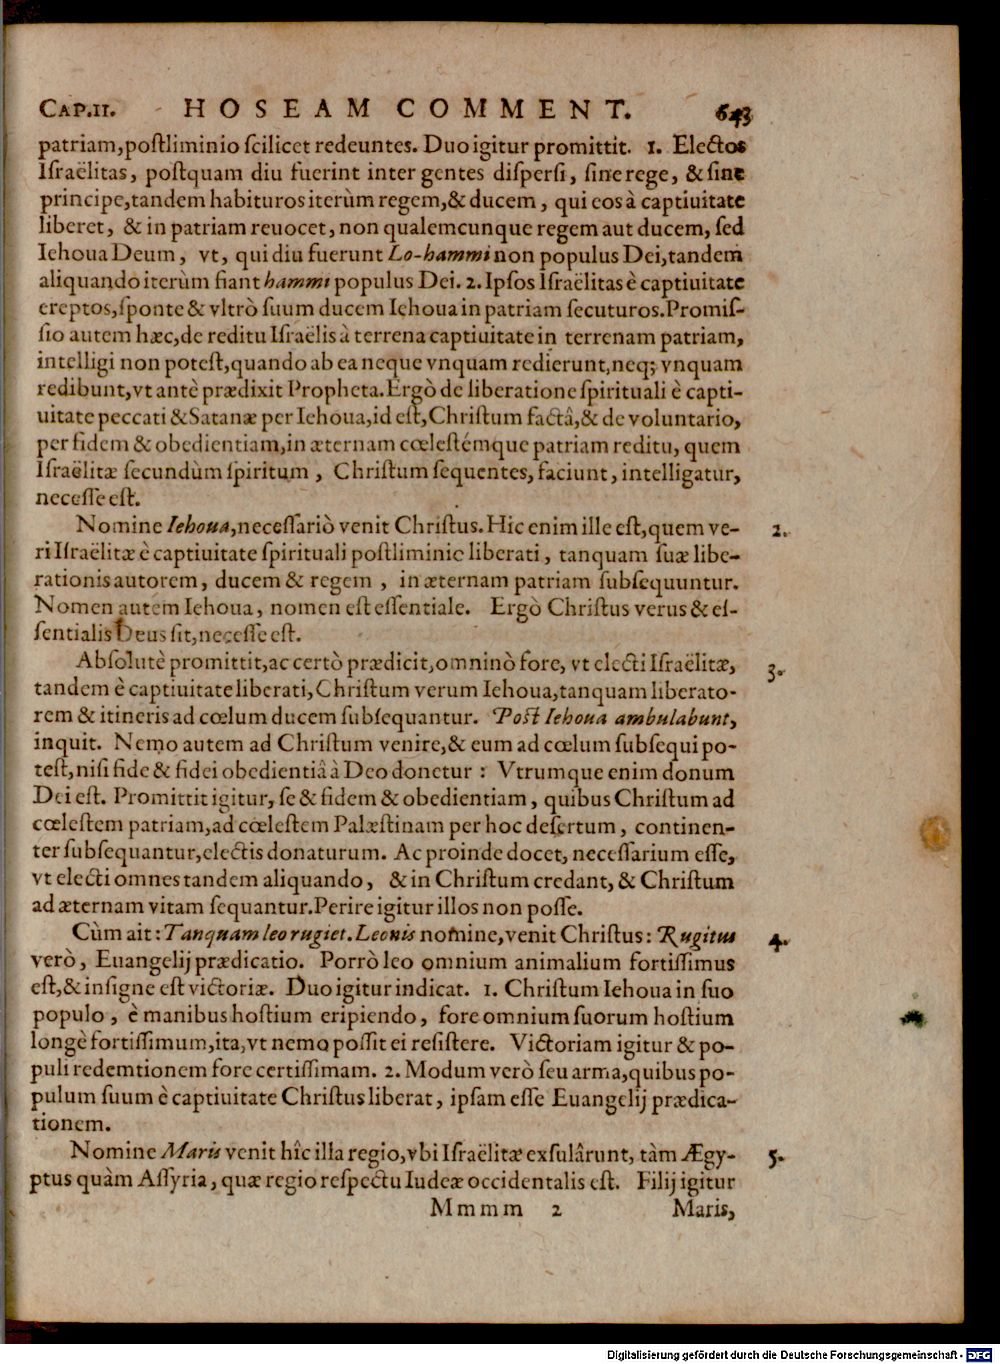 CAP.II. HOSEAM COMMENT. 643
patriam,postliminio scilicet redeuntes. Duo igitur promittit. 1. Electos
Israëlitas, postquam diu fuerint inter gentes dispersi, sine rege, & sine
principe,tandem habituros iterùm regem,& ducem, qui eos à captiuitate
liberet, & in patriam reuocet, non qualemcunque regem aut ducem, sed
Iehoua Deum, vt, qui diu fuerunt Lo-hammi non populus Dei,tandem
aliquando iterùm fiant hammi populus Dei. 2. Ipsos Israëlitas è captiuitate
ereptos,sponte & vltrò suum ducem Iehoua in patriam secuturos.Promis-
sio autem hæc,de reditu Israëlis à terrena captiuitate in terrenam patriam,
intelligi non potest,quando ab ea neque vnquam redierunt,neq; vnquam
redibunt,vt antè prædixit Propheta.Ergò de liberatione spirituali è capti-
uitate peccati & Satanæ per Iehoua,id est,Christum factâ,& de voluntario,
per fidem & obedientiam,in æternam cœlestémque patriam reditu, quem
Israëlitæ secundùm spiritum, Christum sequentes, faciunt, intelligatur,
necesse est.
Nomine Iehoua,necessariò venit Christus. Hic enim ille est,quem ve- 2.
ri Israëlitæ è captiuitate spirituali postliminio liberati, tanquam suæ libe-
rationis autorem, ducem & regem, in æternam patriam subsequuntur.
Nomen autem Iehoua, nomen est essentiale. Ergò Christus verus & es-
sentialis Deus sit,necesse est.
Absolutè promittit,ac certò prædicit,omninò fore, vt electi Israëlitæ, 3.
tandem è captiuitate liberati,Christum verum Iehoua,tanquam liberato-
rem & itineris ad cœlum ducem subsequantur. Post Iehoua ambulabunt,
inquit. Nemo autem ad Christum venire,& eum ad cœlum subsequi po-
test,nisi fide & fidei obedientiâ à Deo donetur: Vtrumque enim donum
Dei est. Promittit igitur, se & fidem & obedientiam, quibus Christum ad
cœlestem patriam,ad cœlestem Palæstinam per hoc desertum, continen-
ter subsequantur,electis donaturum. Ac proinde docet, necessarium esse,
vt electi omnes tandem aliquando, & in Christum credant, & Christum
ad æternam vitam sequantur.Perire igitur illos non posse.
Cùm ait: Tanquam leo rugiet. Leonis nomine,venit Christus: Rugitus 4.
verò, Euangelij prædicatio. Porrò leo omnium animalium fortissimus
est,& insigne est victoriæ. Duo igitur indicat. 1. Christum Iehoua in suo
populo, è manibus hostium eripiendo, fore omnium suorum hostium
longè fortissimum,ita,vt nemo possit ei resistere. Victoriam igitur & po-
puli redemtionem fore certissimam. 2. Modum verò seu arma,quibus po-
pulum suum è captiuitate Christus liberat, ipsam esse Euangelij prædica-
tionem.
Nomine Maris venit hîc illa regio,vbi Israëlitæ exsulârunt, tàm Ægy- 5.
ptus quàm Assyria, quæ regio respectu Iudeæ occidentalis est. Filij igitur
Mmmm 2 Maris,
Digitalisierung gefördert durch die Deutsche Forschungsgemeinschaft - DFG